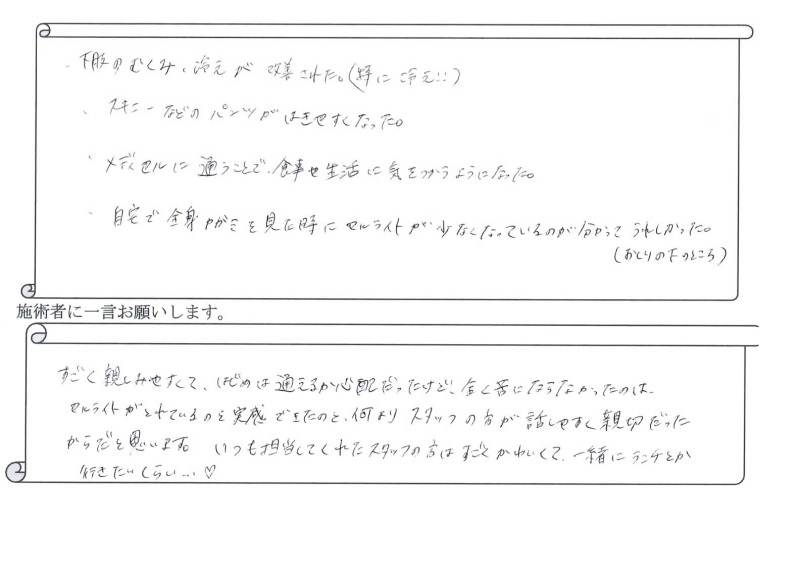 ・下肢のむくみ、冷えが改善された。(特に冷え!!)
・スキニーなどのパンツがはきやすくなった。
・メディセルに通うことで、食事や生活に気をつかうようになった。
・自宅で全身カガミを見た時にセルライトが少なくなっているのが分かってうれしかった。
(おしりの下のところ)
施術者に一言お願いします。
すごく親しみやすくて、はじめは通えるか心配だったけど、全く苦にならなかったのは、
セルライトがとれているのを実感できたのと、何よりスタッフの方が話しやすく親切だった
からだと思います。いつも担当してくれたスタッフの方はすごくかわいくて、一緒にランチとか
行きたいくらい…♡